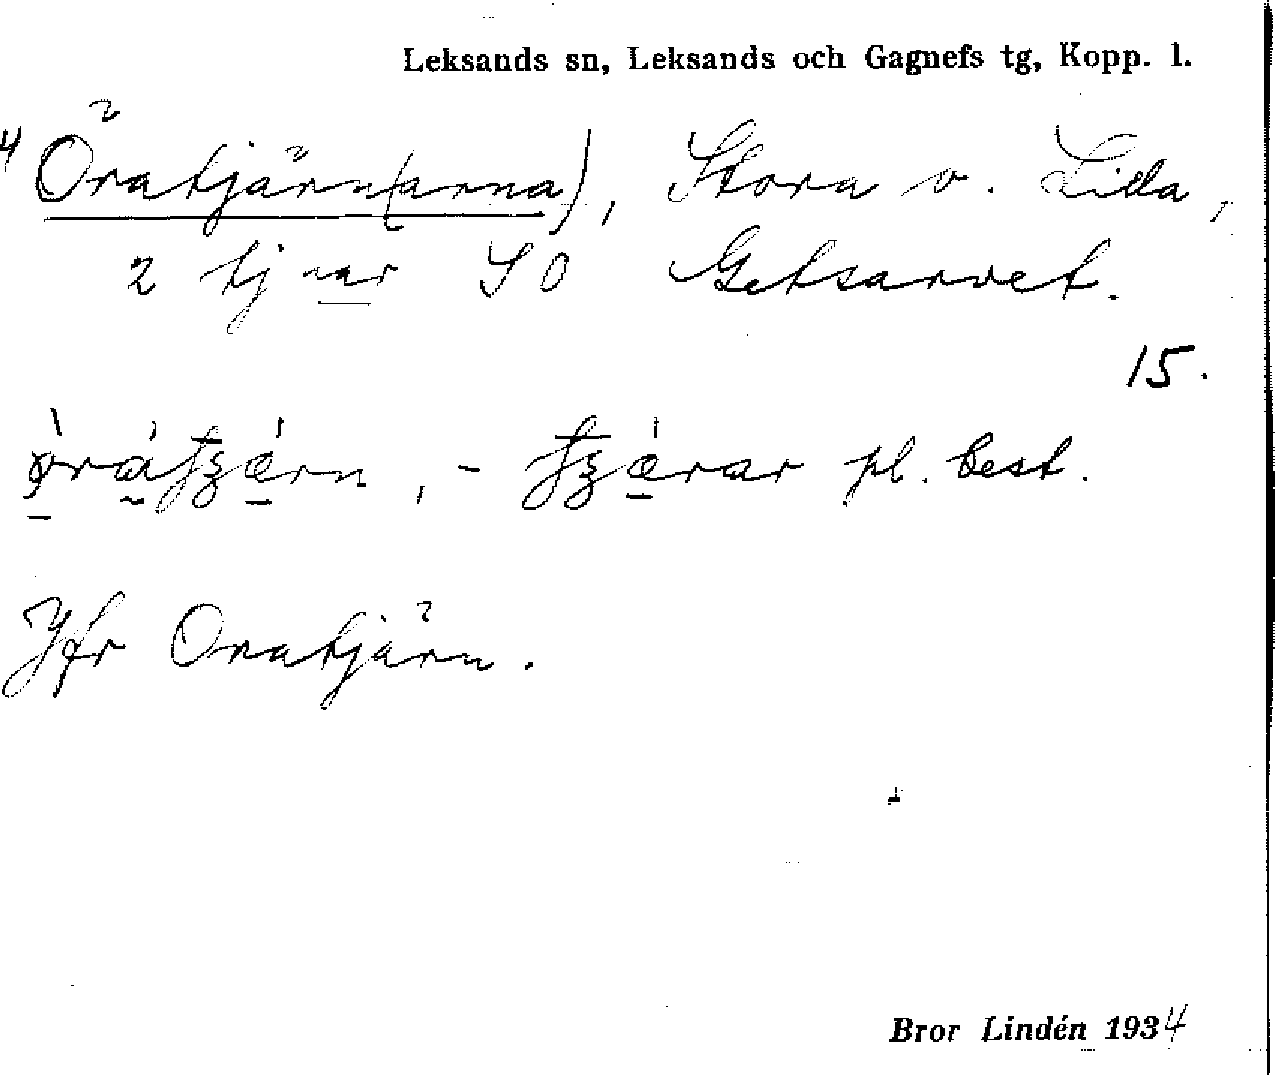 Leksands sn, Leksands och Gagnefs tg, Kopp. l.
4 Öratjärn(arna), Stora o. Lilla,
2 tjnar SO Getsarvet.
15.
pl. best.
Jfr Oratjärn.
Bror Lindén 1934